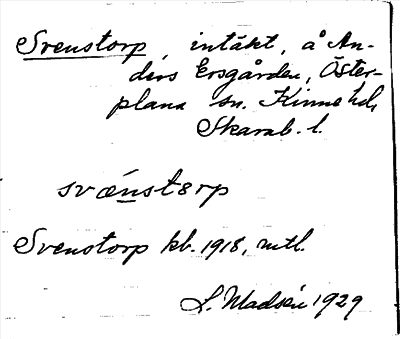 Svenstorp, intäkt, å An-
ders Ersgården, Öster-
plana sn. Kinne hd,
Skarab. l.
svænstɛrp
Svenstorp kb. 1918, mtl.
L. Madsén 1929